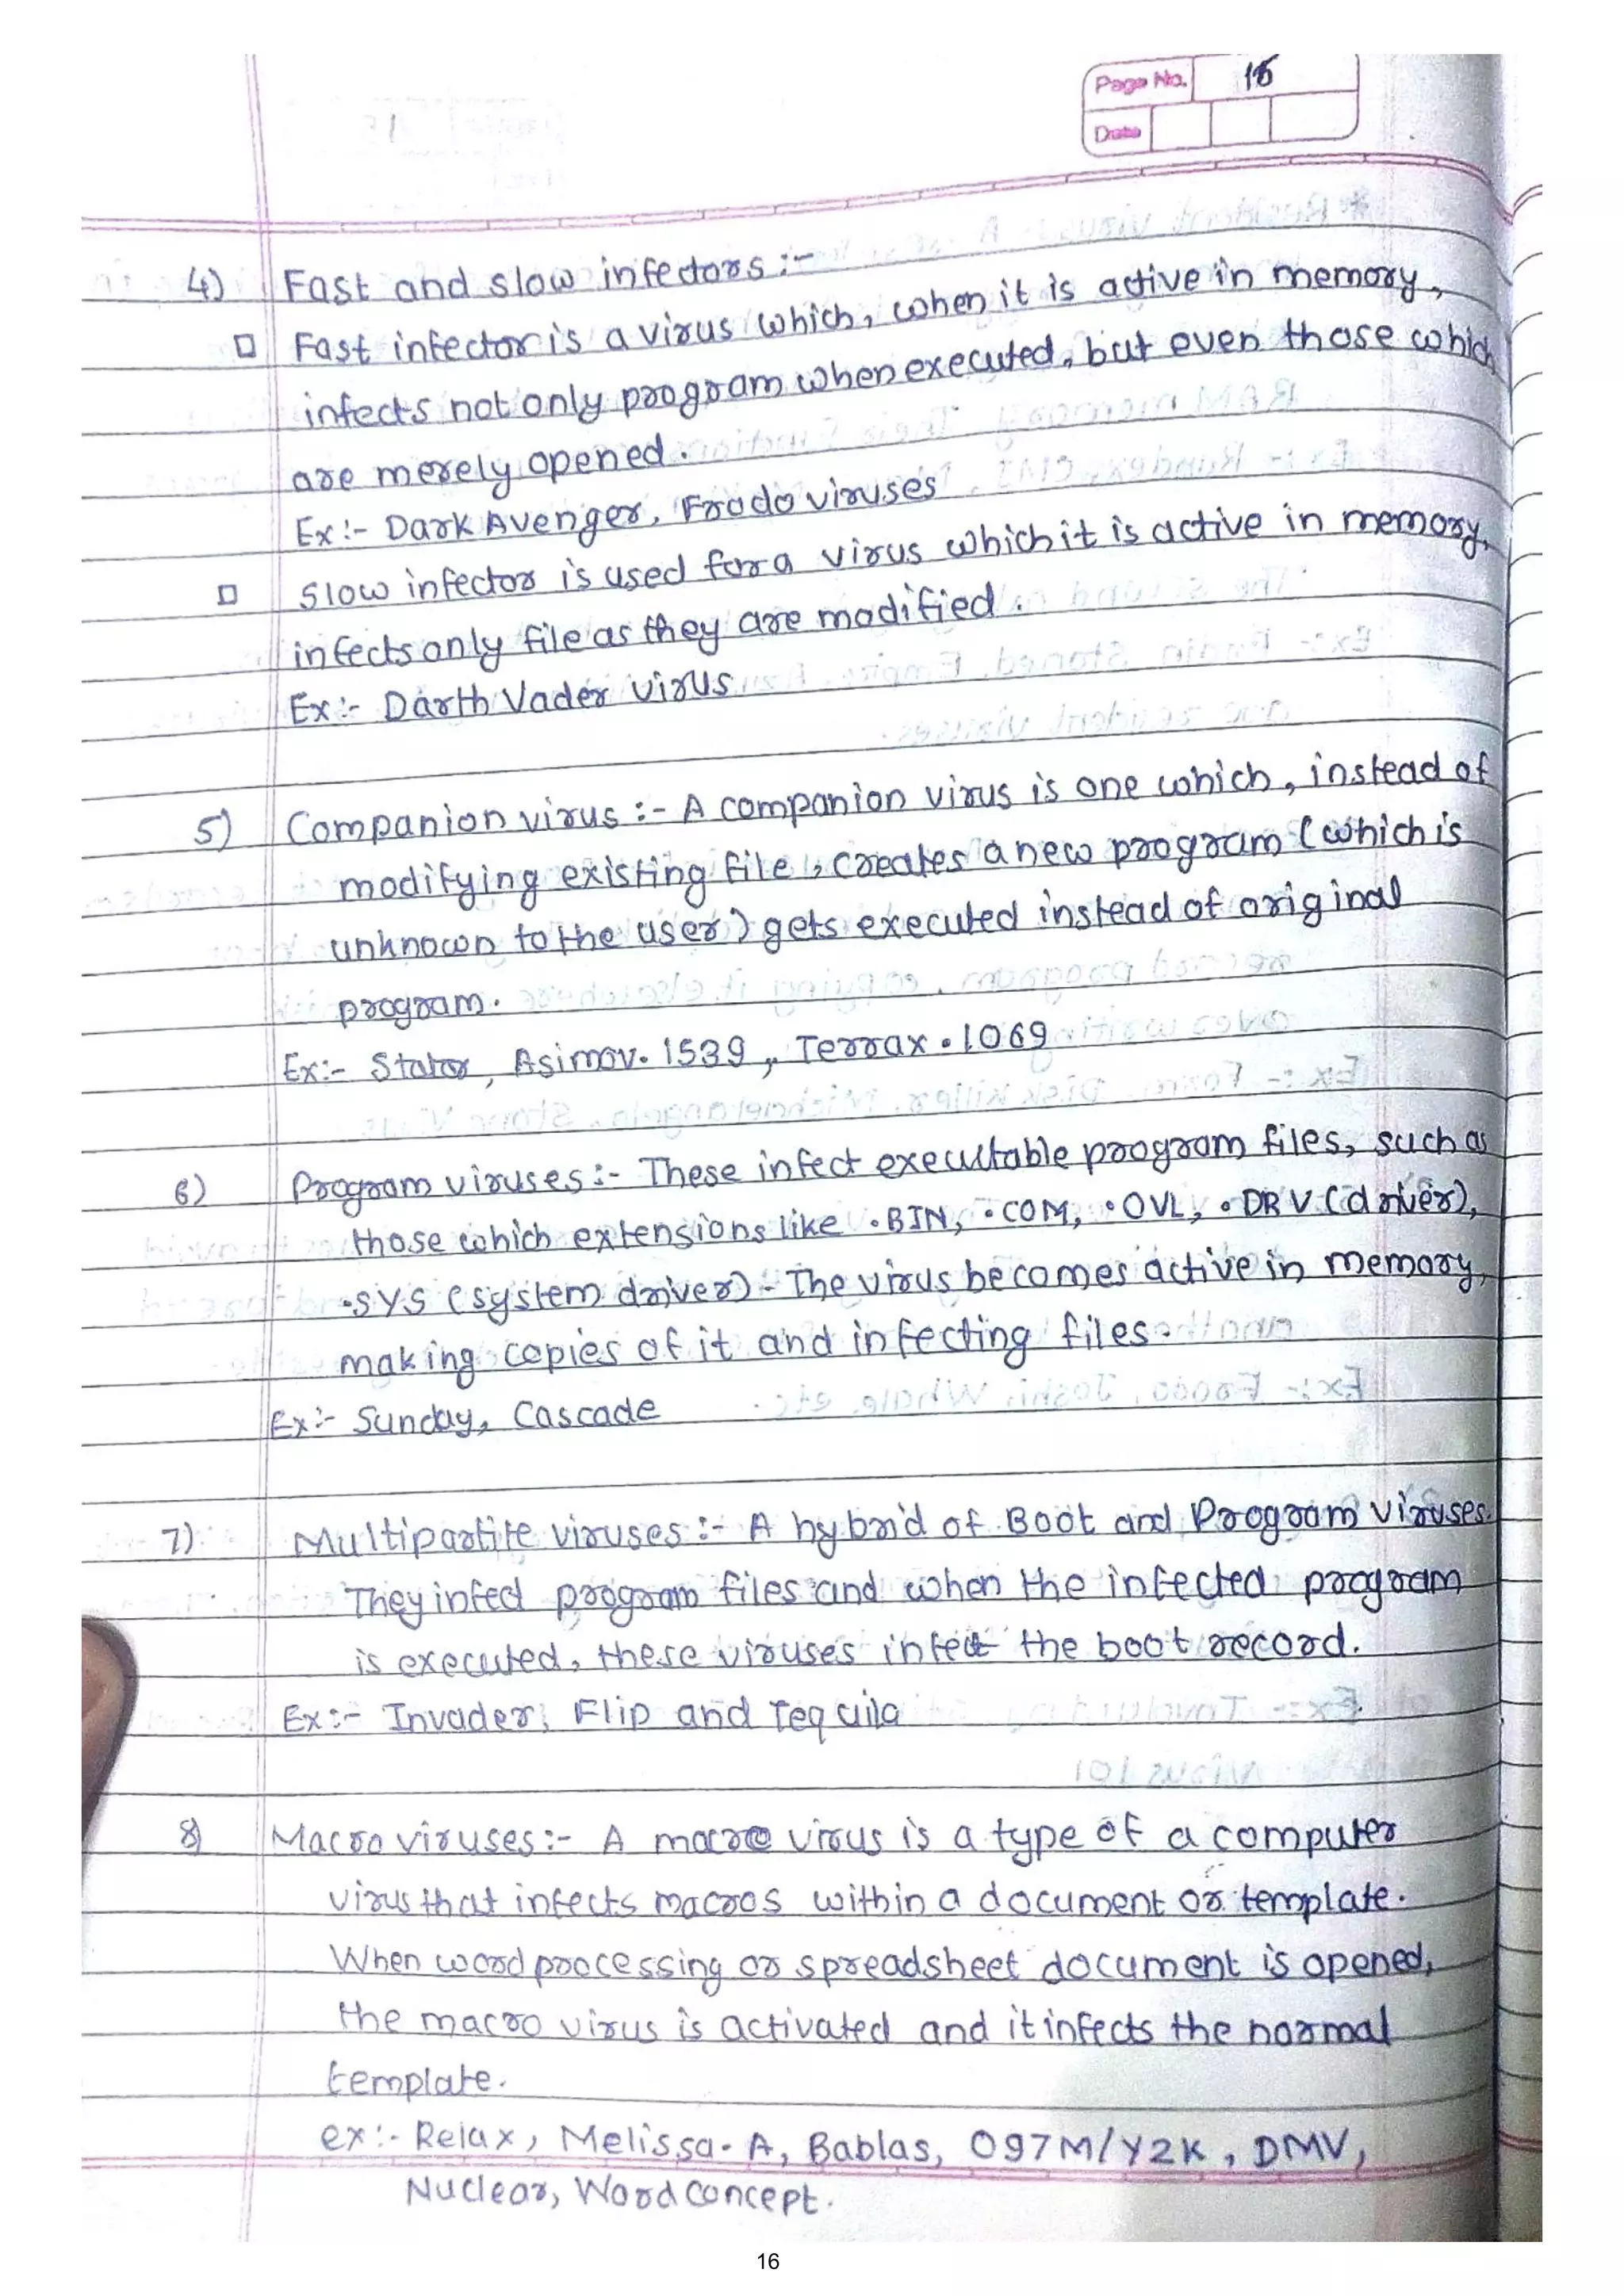 Page No. 16
Date
4) Fast and slow infectors :-
□ Fast infector is a virus which, when it is active in memory,
infects not only program when executed, but even those which
are merely opened.
Ex :- Dark Avenger, Frodo viruses
□ Slow infector is used for a virus which it is active in memory,
infects only file as they are modified.
Ex :- Darth Vader virus
5) Companion virus :- A companion virus is one which, instead of
modifying existing file, creates a new program (which is
unknown to the user) gets executed instead of original
program.
Ex:- Stator, Asimov.1539, Terrax.1069
6) Program viruses :- These infect executable program files, such as
those which extensions like .BIN, .COM, .OVL, .DRV (driver),
.SYS (system driver) - The virus becomes active in memory,
making copies of it and infecting files.
Ex :- Sunday, Cascade
7) Multipartite viruses :- A hybrid of Boot and Program viruses.
They infect program files and when the infected program
is executed, these viruses infect the boot record.
Ex :- Invader, Flip and Tequila
8) Macro viruses :- A macro virus is a type of a computer
virus that infects macros within a document or template.
When word processing or spreadsheet document is opened,
the macro virus is activated and it infects the normal
template.
ex :- Relax, Melissa.A, Bablas, O97M/Y2K, DMV,
Nuclear, Word Concept.
16